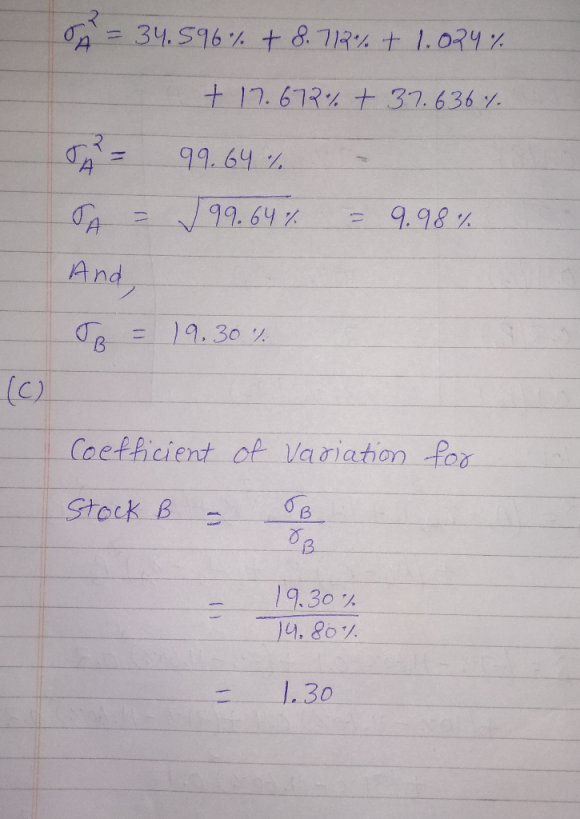 σA² = 34.596% + 8.712% + 1.024%
+ 17.672% + 37.636%
σA² = 99.64%
σA = √99.64% = 9.98%
And,
σB = 19.30%
(C)
Coefficient of Variation for
Stock B = σB / rB
= 19.30% / 14.80%
= 1.30